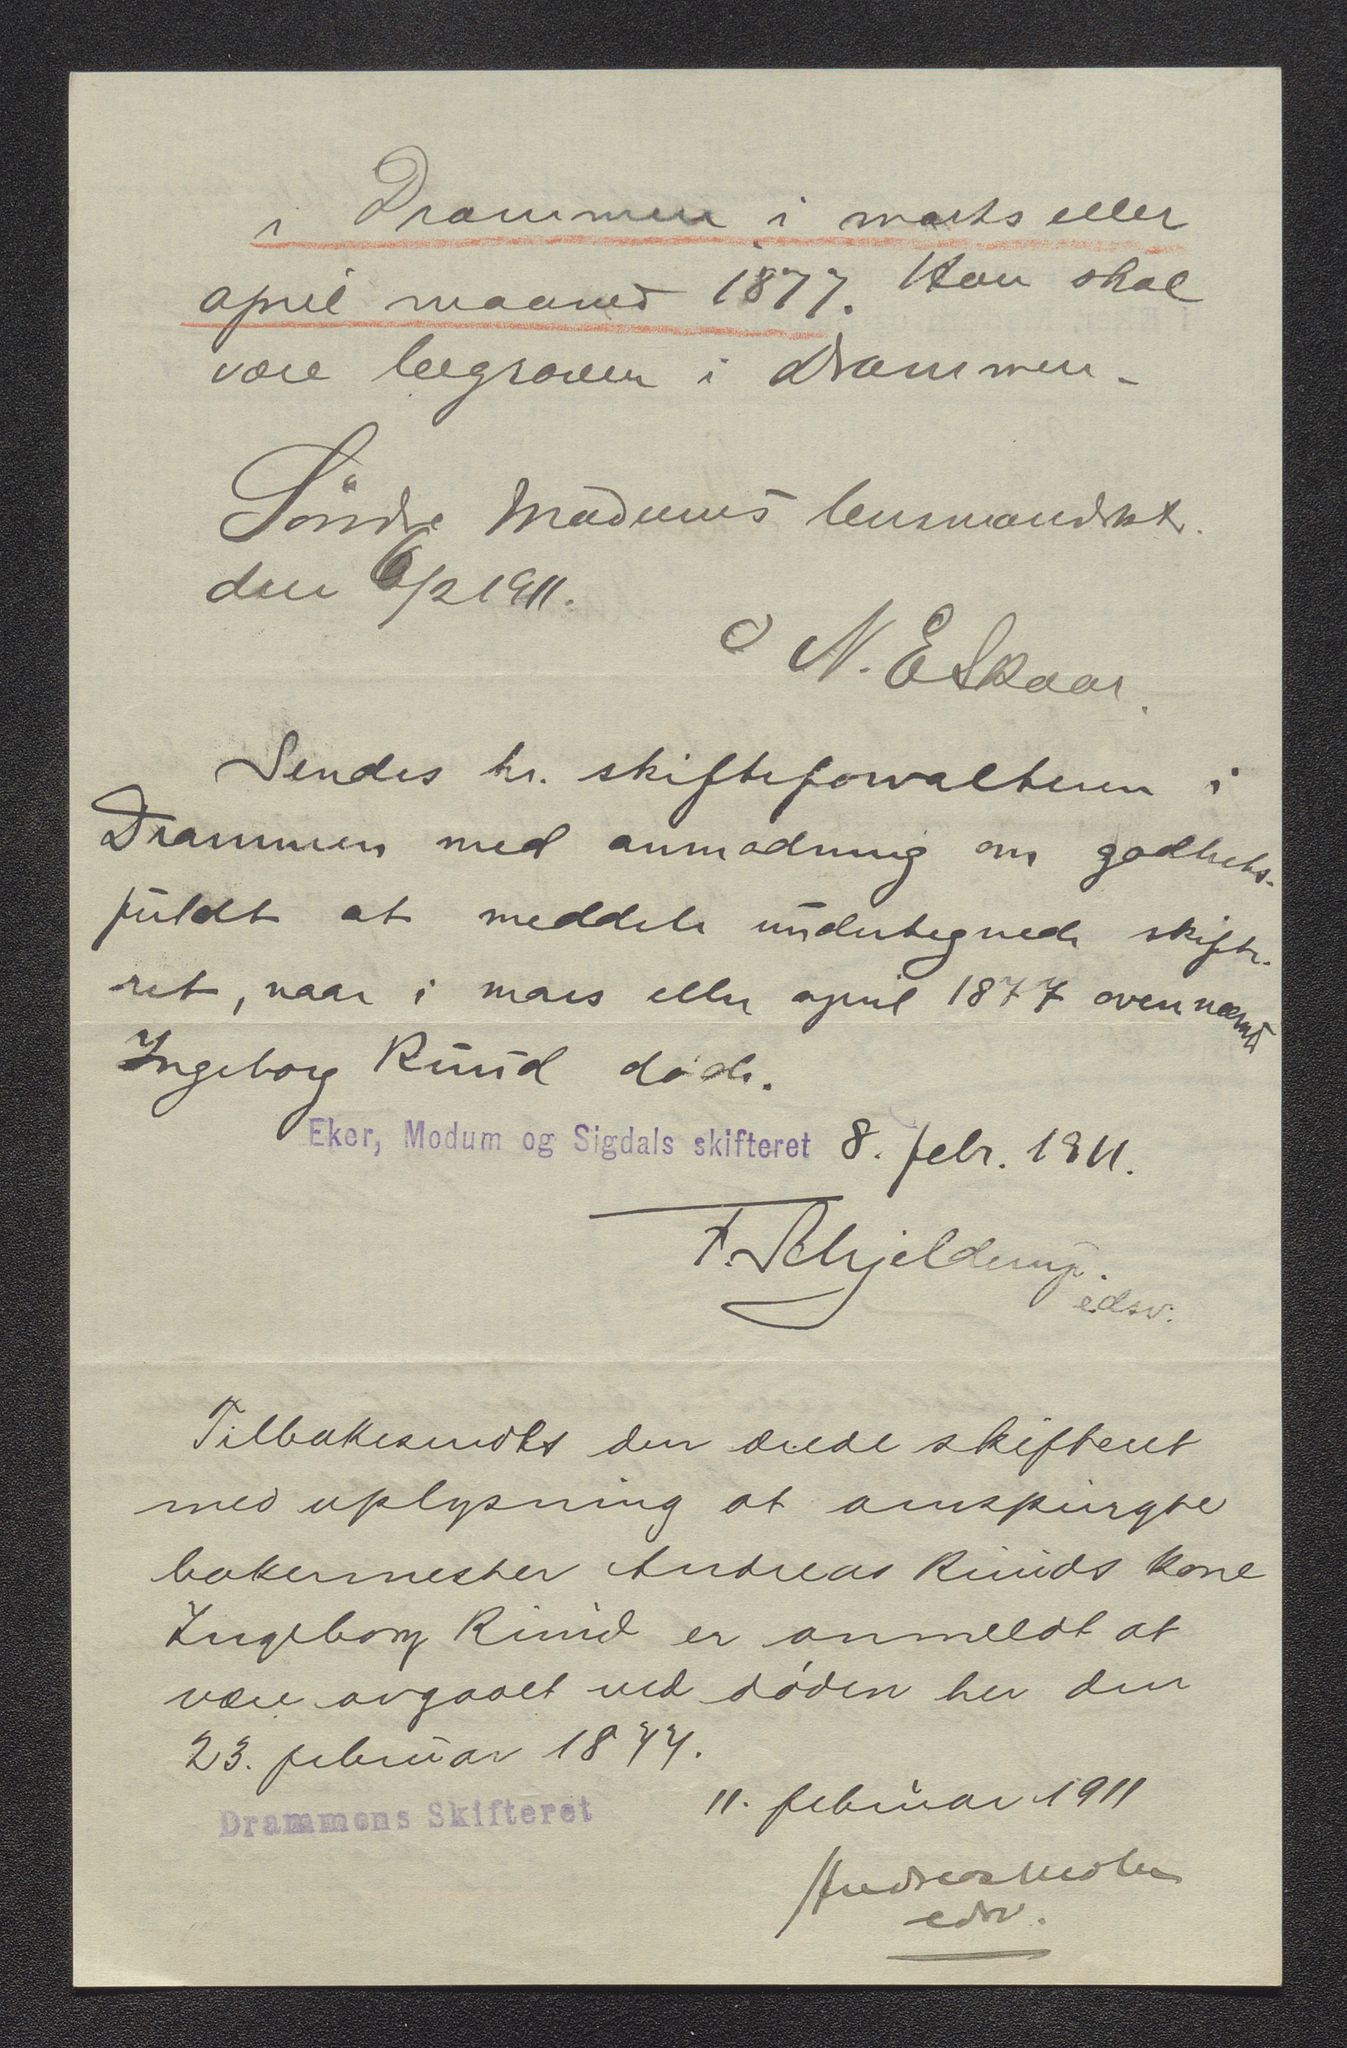 i Drammen i marts eller
april maaned 1877. Hun skal
være begraven i Drammen -
Søndre Modums lensmandskt.
den 6/2 1911.
N. E Skaar.
Sendes hr. skifteforvalteren i
Drammen med anmodning om godhets-
fuldt at meddele undertegnede skifte-
ret, naar i mars eller april 1877 ovennævnte
Ingeborg Ruud døde.
Eker, Modum og Sigdals skifteret 8. febr. 1911.
F. Schjelderup.
edsv.
Tilbakesendes den ærede skifteret
med oplysning at omspurgte
bakermester Andreas Ruuds kone
Ingeborg Ruud er anmeldt at
være avgaaet ved døden her den
23. februar 1877.
Drammens Skifteret 11. februar 1911
Andreas
edsv.